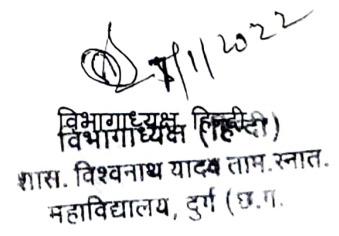 7/1/2022
विभागाध्यक्ष (हिन्दी)
शास. विश्वनाथ यादव ताम. स्नात.
महाविद्यालय, दुर्ग (छ.ग.